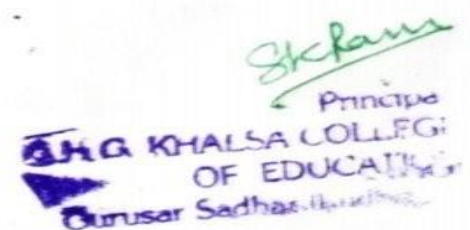 Principa
G.H.G KHALSA COLLEG
OF EDUCATI
Gurusar Sadha